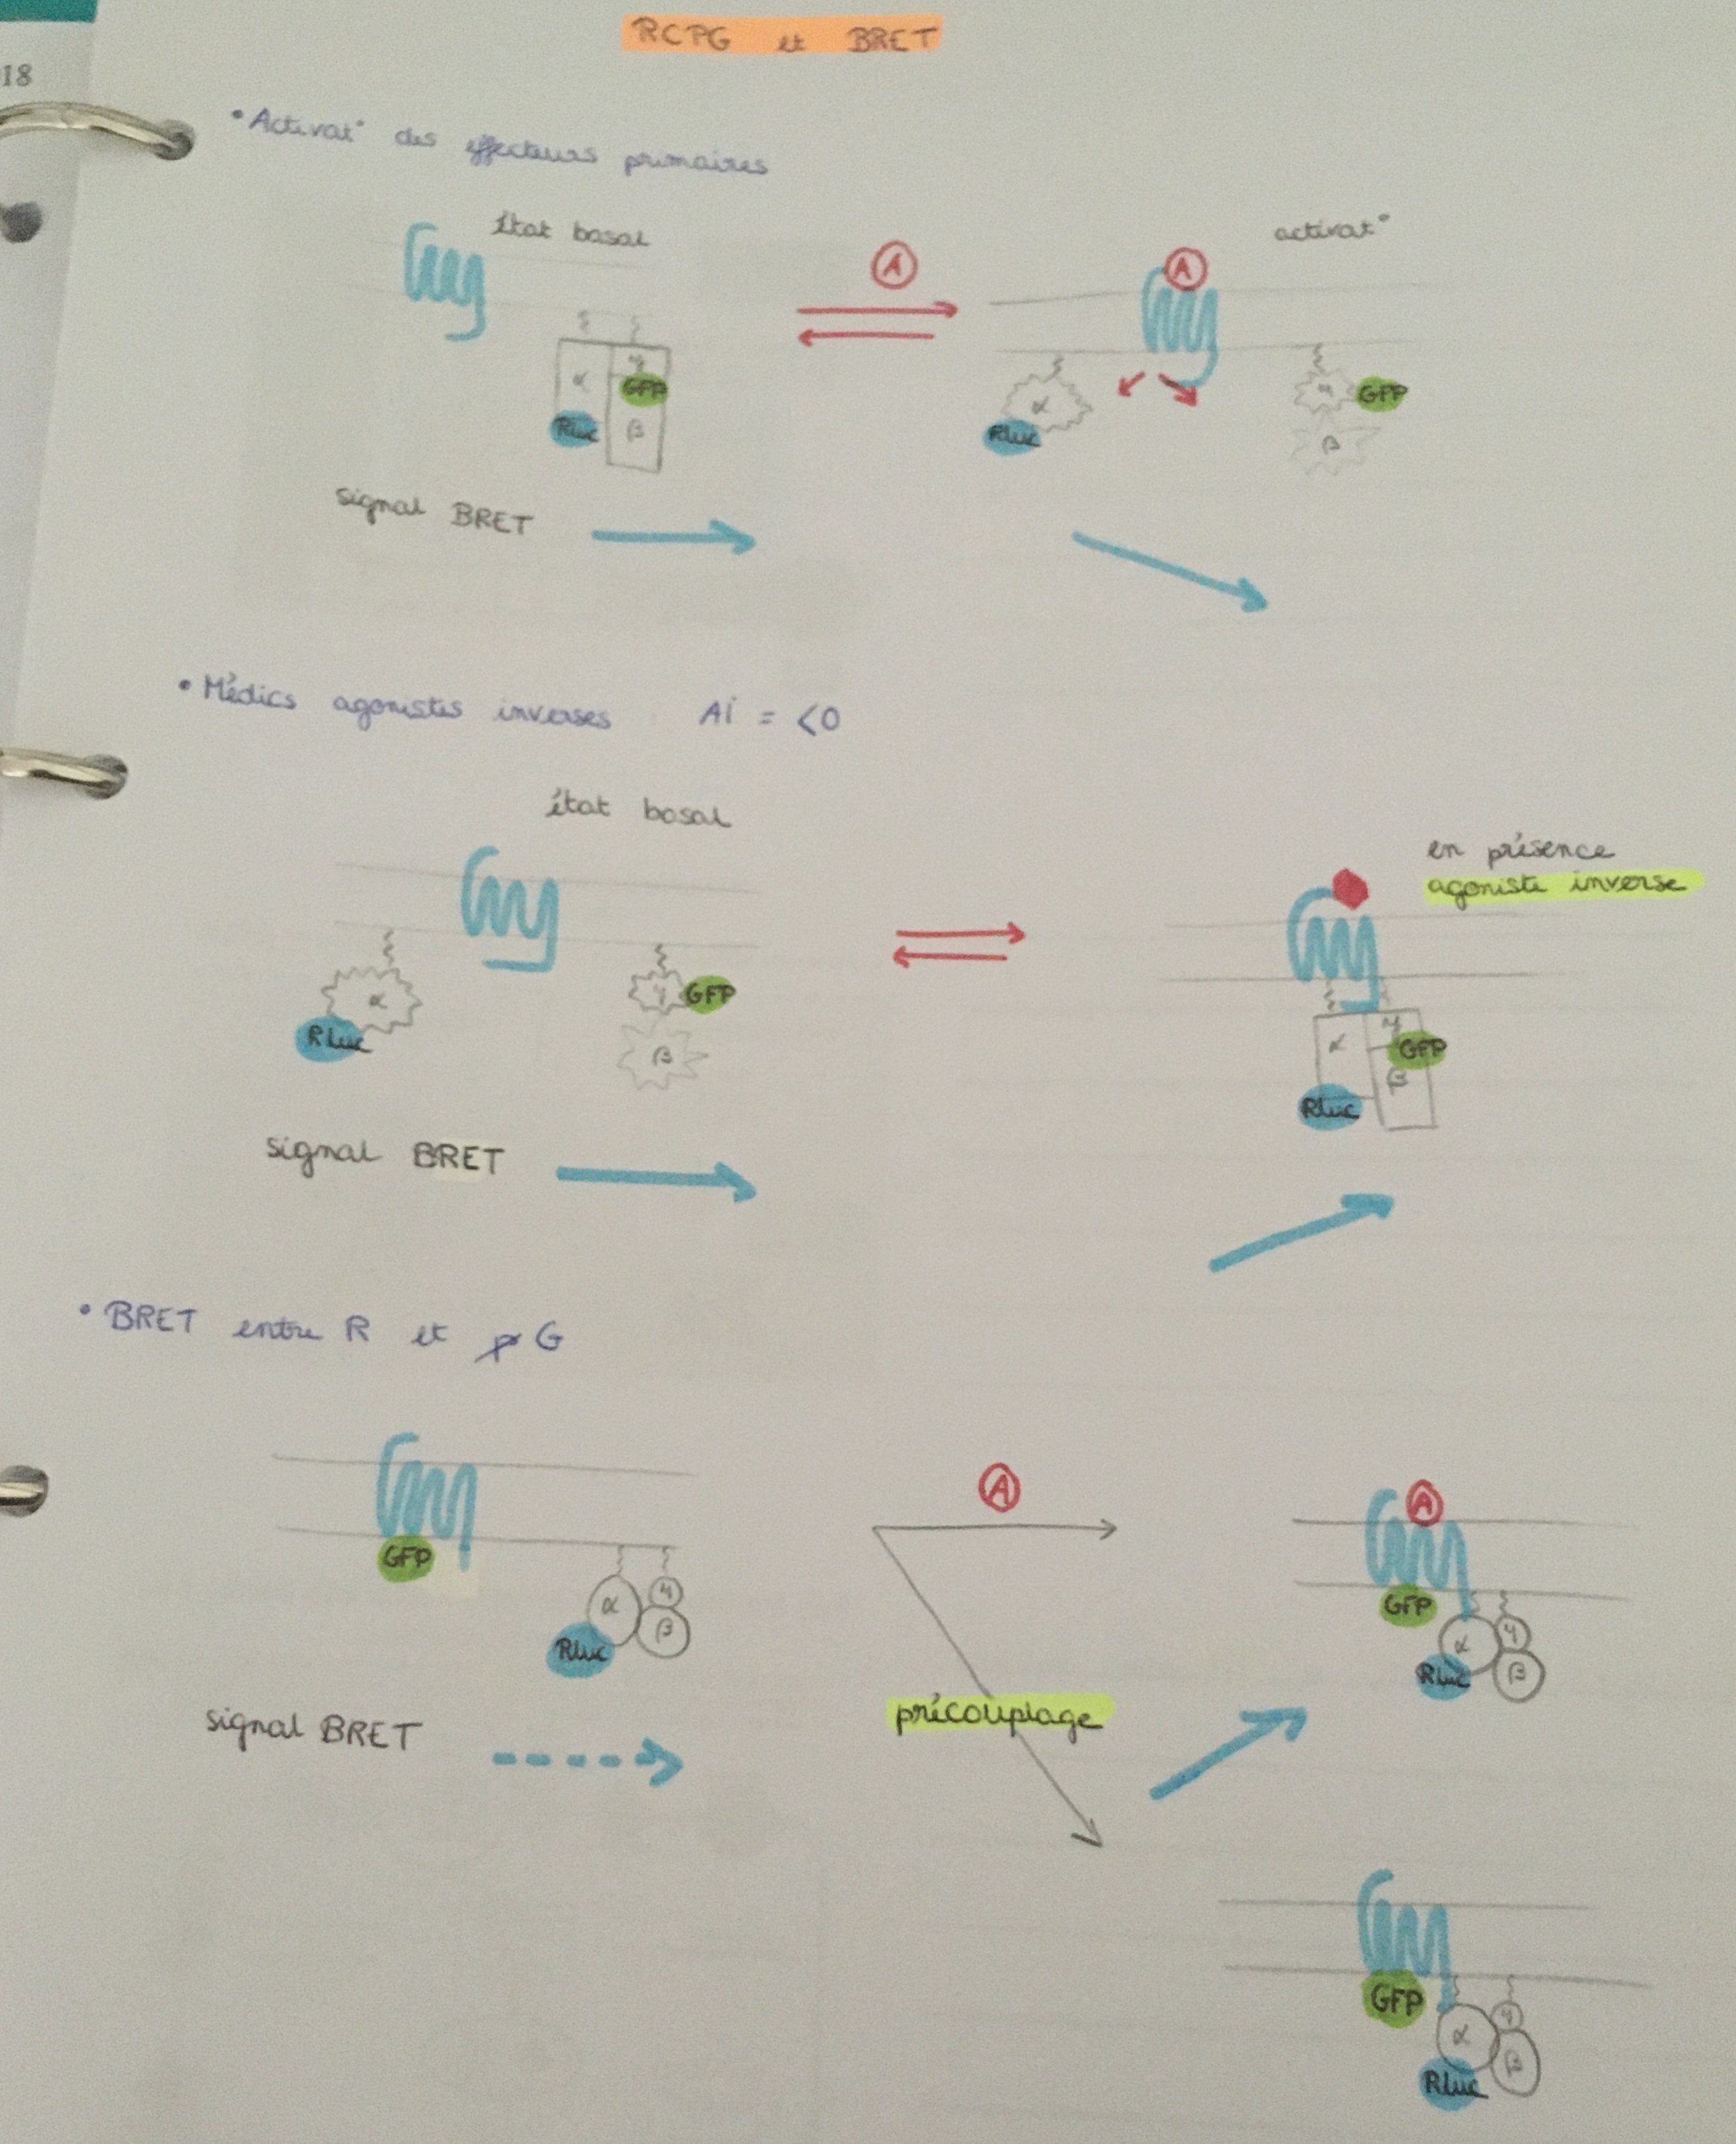 RCPG et BRET
18
• Activat° des effecteurs primaires
état basal
A
activat°
A
α γ
GFP
Rluc β
α
Rluc
γ GFP
β
signal BRET
• Médics agonistes inverses Ai = <0
état basal
en présence
agoniste inverse
α
Rluc
γ GFP
β
α γ
GFP
β
Rluc
signal BRET
• BRET entre R et p G
A
A
GFP
α γ
β
Rluc
GFP
α γ
Rluc β
signal BRET
précouplage
GFP
α γ
β
Rluc